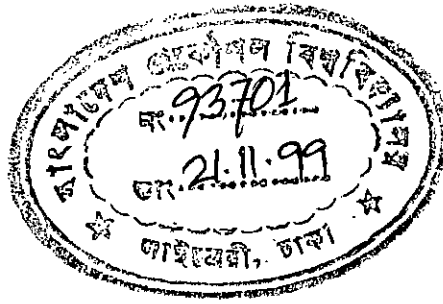 বাংলাদেশ প্রকৌশল বিশ্ববিদ্যালয়
নং..93701
তাং.21.11.99
লাইব্রেরী, ঢাকা